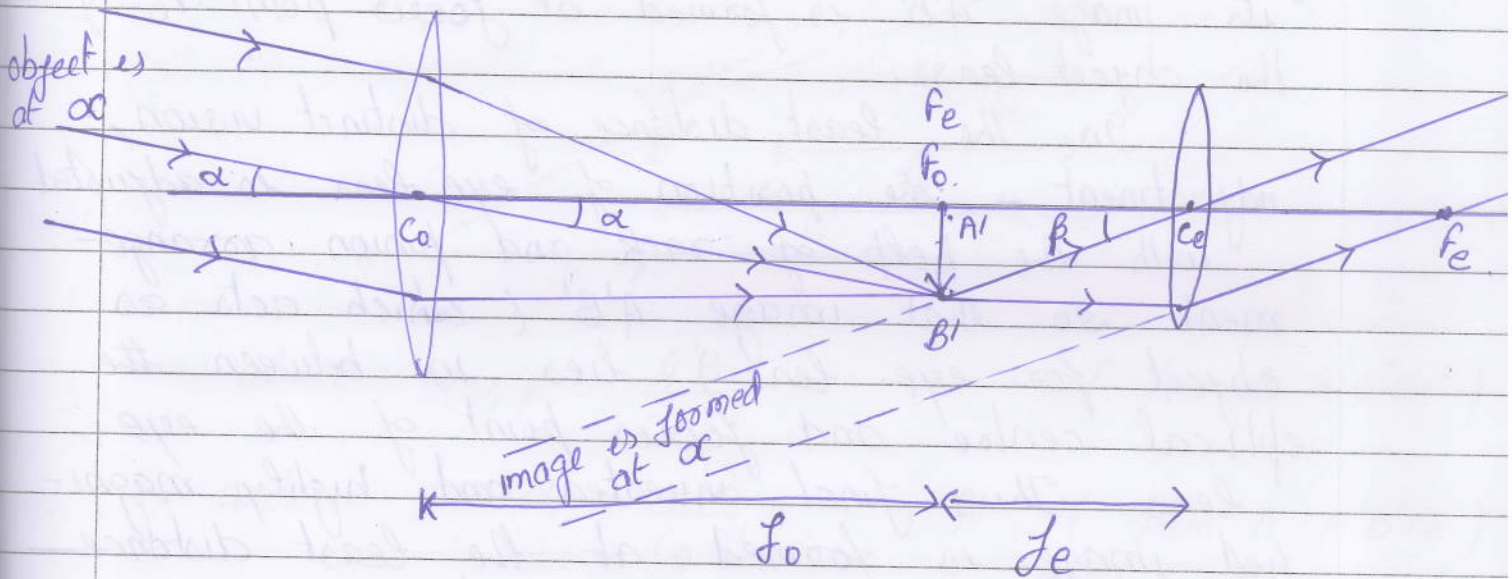 object is
at ∝
α
Co
α
Fe
Fo
A'
B'
β
Ce
Fe
image is formed
at ∝
fo
fe